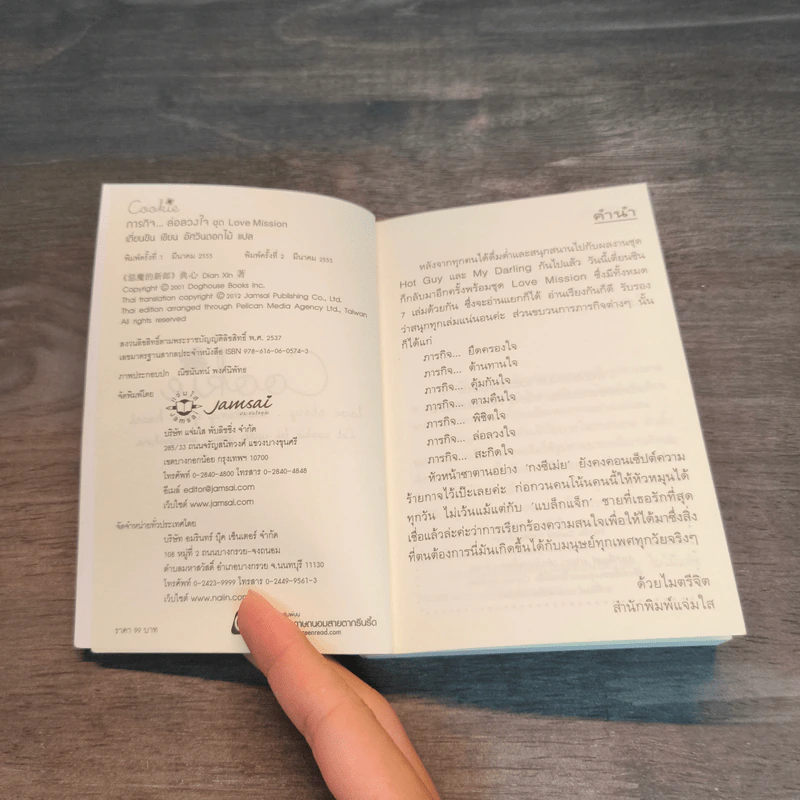 Cookie
ภารกิจ... ล่อลวงใจ ชุด Love Mission
เตี่ยนซิน เขียน อัศวินดอกไม้ แปล
พิมพ์ครั้งที่ 1 มีนาคม 2555 พิมพ์ครั้งที่ 2 มีนาคม 2555
《惡魔的新郎》典心 Dian Xin 著
Copyright © 2001 Doghouse Books Inc.
Thai translation copyright © 2012 Jamsai Publishing Co., Ltd.
Thai edition arranged through Pelican Media Agency Ltd., Taiwan
All rights reserved
สงวนลิขสิทธิ์ตามพระราชบัญญัติลิขสิทธิ์ พ.ศ. 2537
เลขมาตรฐานสากลประจำหนังสือ ISBN 978-616-06-0574-3
ภาพประกอบปก ณิชนันทน์ พงศ์นิพัทธ
จัดพิมพ์โดย
แจ่มใส
jamsai
jamsai
บริษัท แจ่มใส พับลิชชิ่ง จำกัด
285/33 ถนนจรัญสนิทวงศ์ แขวงบางขุนศรี
เขตบางกอกน้อย กรุงเทพฯ 10700
โทรศัพท์ 0-2840-4800 โทรสาร 0-2840-4848
อีเมล์ editor@jamsai.com
เว็บไซต์ www.jamsai.com
จัดจำหน่ายทั่วประเทศโดย
บริษัท อมรินทร์ บุ๊ค เซ็นเตอร์ จำกัด
108 หมู่ที่ 2 ถนนบางกรวย-จงถนอม
ตำบลมหาสวัสดิ์ อำเภอบางกรวย จ.นนทบุรี 11130
โทรศัพท์ 0-2423-9999 โทรสาร 0-2449-9561-3
เว็บไซต์ www.naiin.com
ถนอมสายตากรีนรีด
ราคา 99 บาท
คำนำ
หลังจากทุกคนได้ดื่มด่ำและสนุกสนานไปกับผลงานชุด
Hot Guy และ My Darling กันไปแล้ว วันนี้เตี่ยนซิน
ก็กลับมาอีกครั้งพร้อมชุด Love Mission ซึ่งมีทั้งหมด
7 เล่มด้วยกัน ซึ่งจะอ่านแยกก็ได้ อ่านเรียงกันก็ดี รับรอง
ว่าสนุกทุกเล่มแน่นอนค่ะ ส่วนขบวนการภารกิจต่างๆ นั้น
ก็ได้แก่
ภารกิจ... ยึดครองใจ
ภารกิจ... ต้านทานใจ
ภารกิจ... คุ้มกันใจ
ภารกิจ... ตามคืนใจ
ภารกิจ... พิชิตใจ
ภารกิจ... ล่อลวงใจ
ภารกิจ... สะกิดใจ
หัวหน้าซาตานอย่าง 'กงซีเม่ย' ยังคงคอนเซ็ปต์ความ
ร้ายกาจไว้เป๊ะเลยค่ะ ก่อกวนคนโน้นคนนี้ให้หัวหมุนได้
ทุกวัน ไม่เว้นแม้แต่กับ 'แบล็กแจ็ก' ชายที่เธอรักที่สุด
เชื่อแล้วล่ะค่ะว่าการเรียกร้องความสนใจเพื่อให้ได้มาซึ่งสิ่ง
ที่ตนต้องการนี่มันเกิดขึ้นได้กับมนุษย์ทุกเพศทุกวัยจริงๆ
ด้วยไมตรีจิต
สำนักพิมพ์แจ่มใส